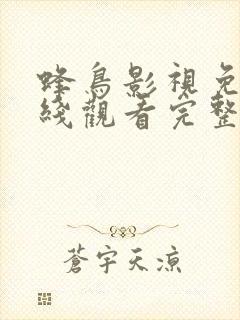 蜂鳥影視免
綫觀看完整
蒼宇天涼